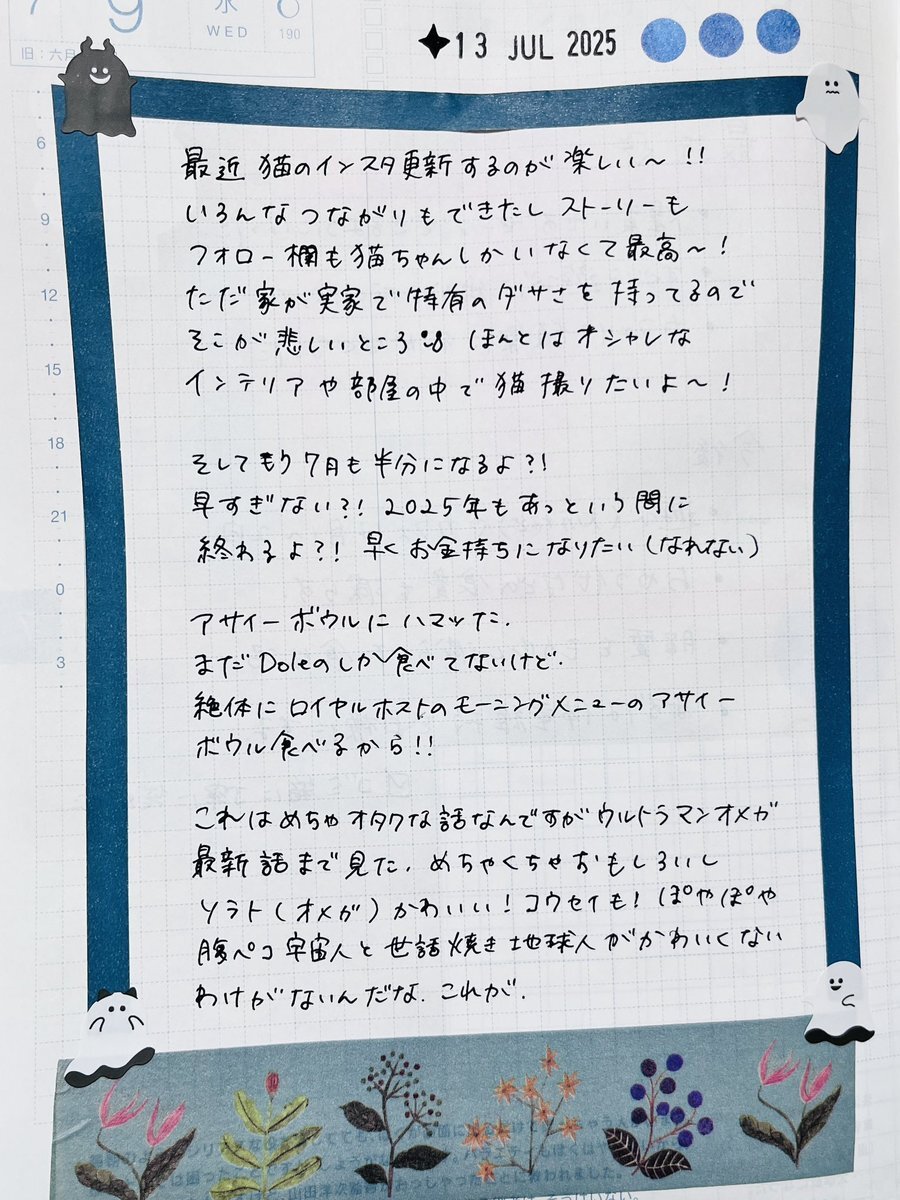 9 水
WED 190
旧:六月
13 JUL 2025
6
9
12
15
18
21
0
3
最近 猫のインスタ更新するのが楽しい〜!!
いろんなつながりもできたし ストーリーも
フォロー欄も猫ちゃんしかいなくて最高〜!
ただ家が実家で特有のダサさを持ってるので
そこが悲しいところ ほんとはオシャレな
インテリアや部屋の中で猫撮りたいよ〜!
そしてもう7月も半分になるよ?!
早すぎない?! 2025年もあっという間に
終わるよ?! 早くお金持ちになりたい(なれない)
アサイーボウルにハマッた.
まだDoleのしか食べてないけど.
絶体にロイヤルホストのモーニングメニューのアサイー
ボウル食べるから!!
これはめちゃオタクな話なんですがウルトラマンオメガ
最新話まで見た. めちゃくちゃおもしろいし
ソラト(オメガ)かわいい! コウセイも! ぽやぽや
腹ペコ宇宙人と世話焼き地球人がかわいくない
わけがないんだな. これが.